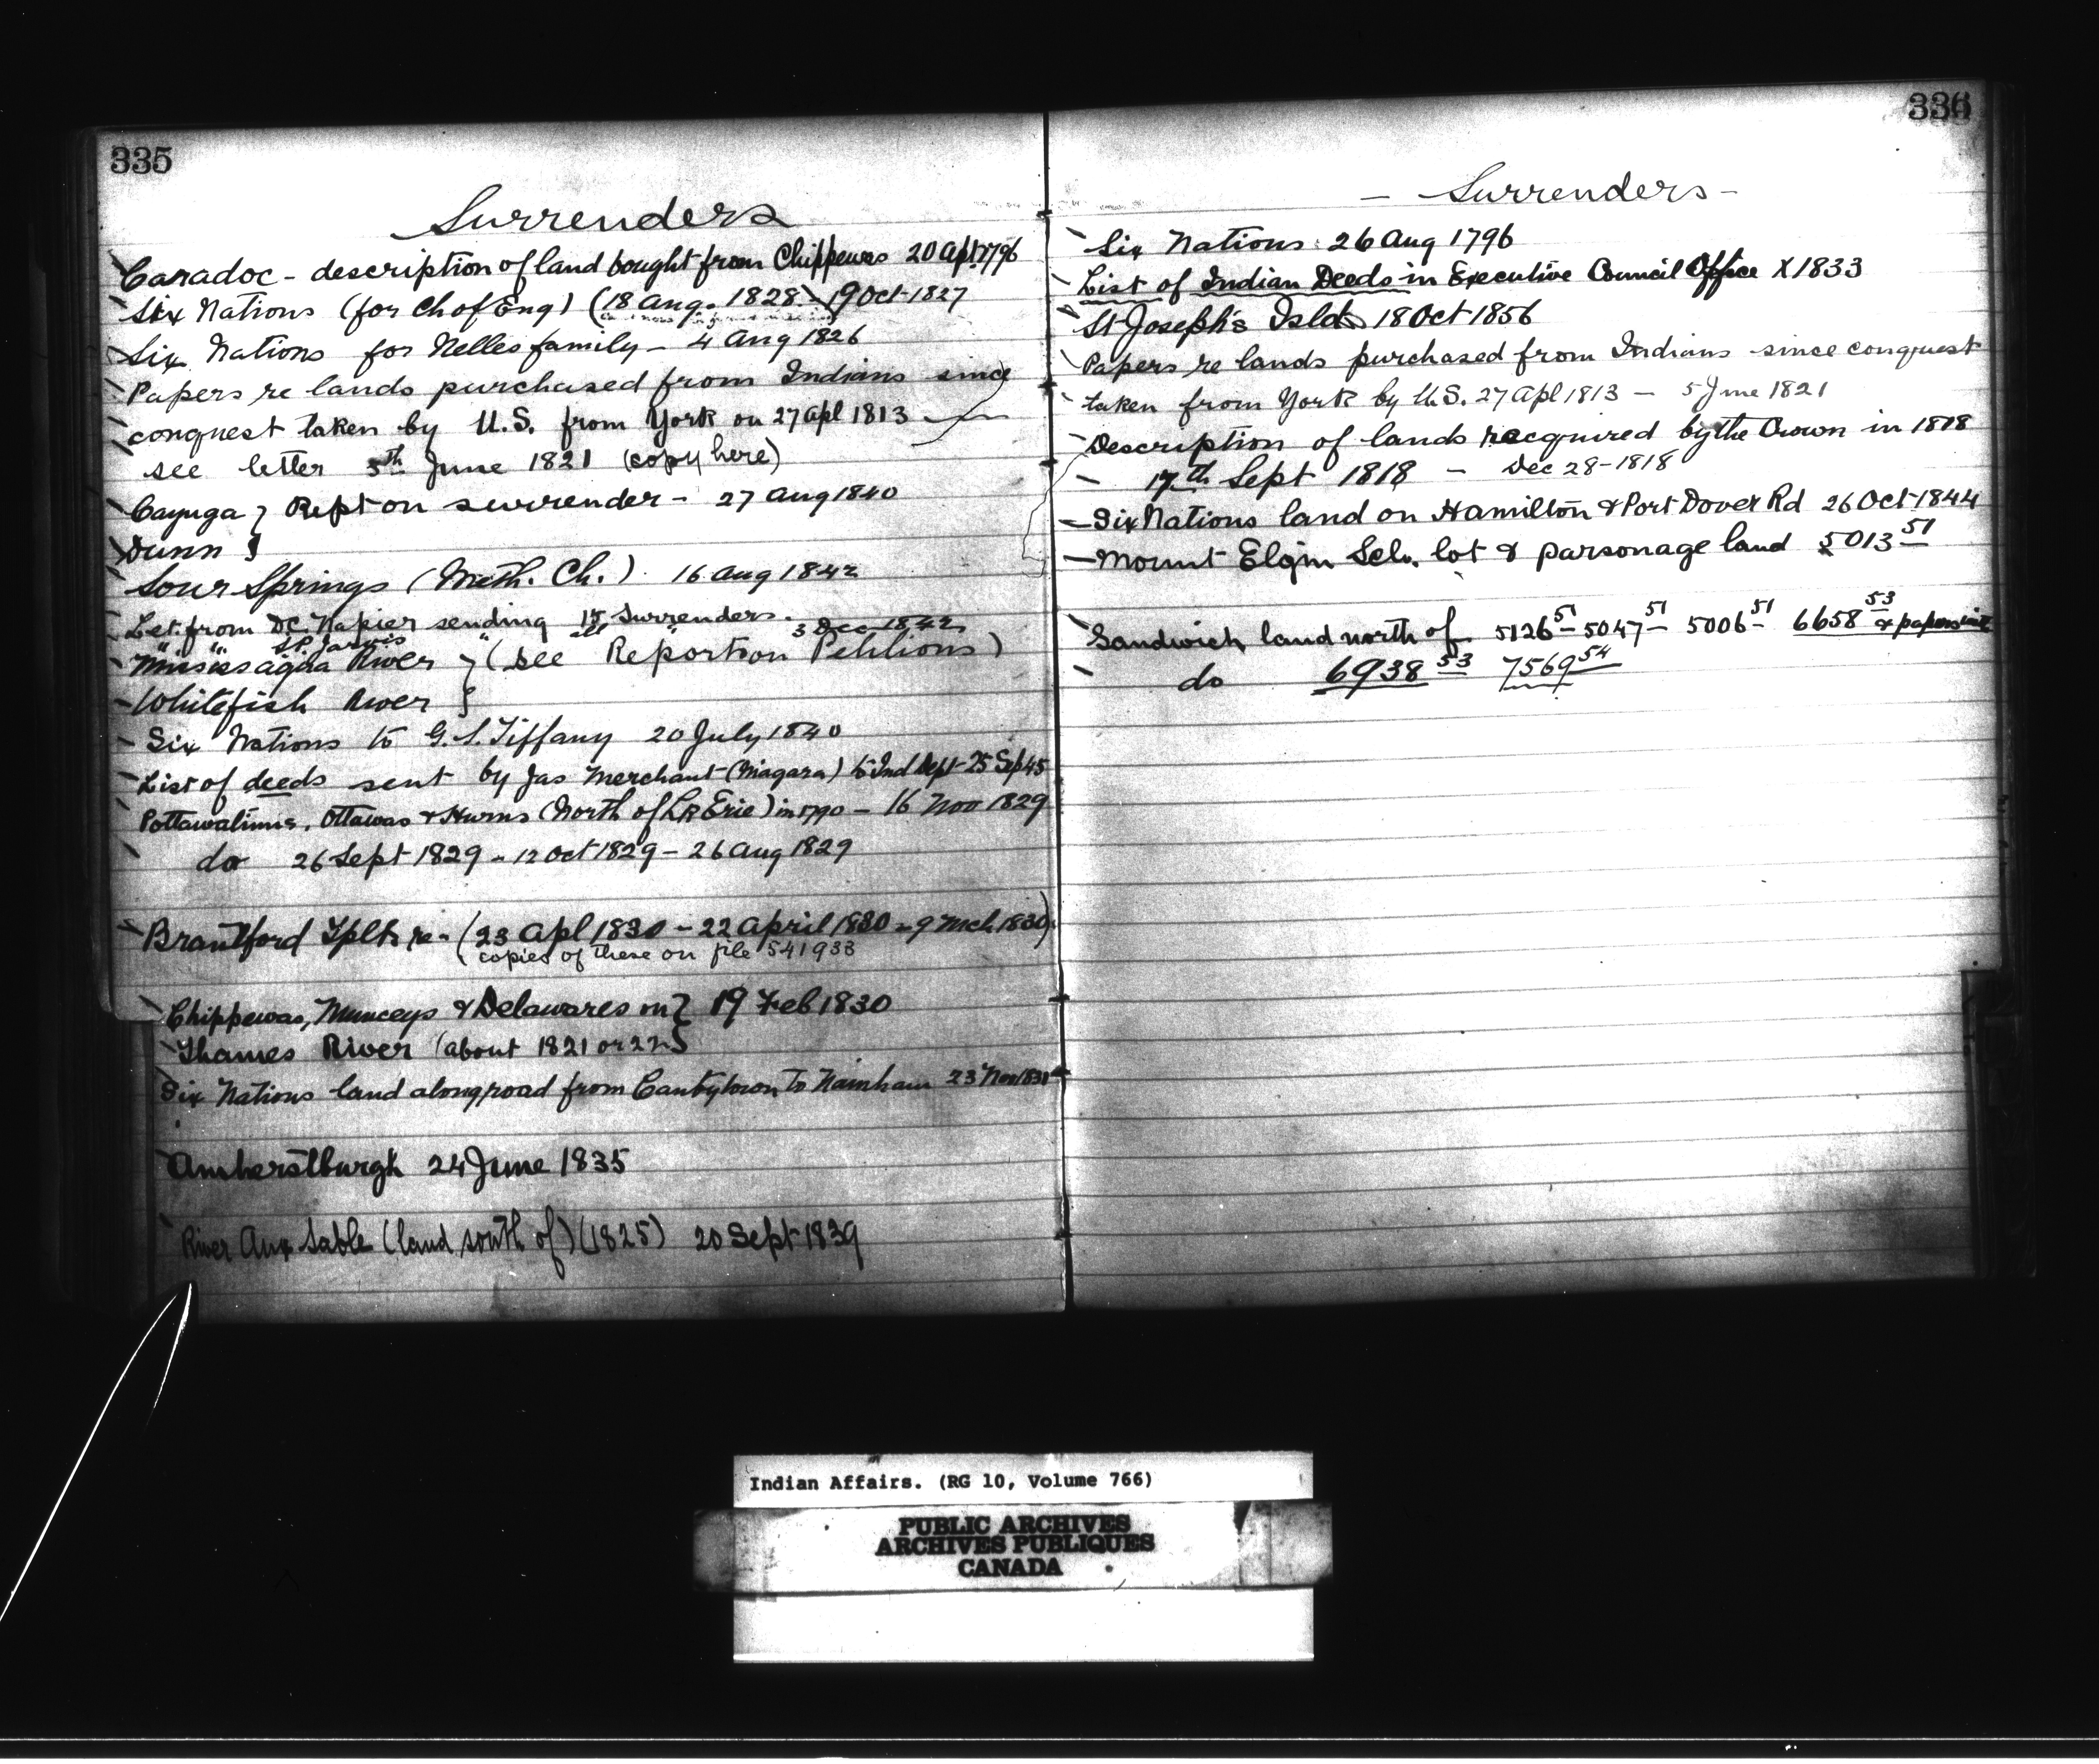 335
Surrenders
Caradoc - description of land bought from Chippewas 20 Apl 1796
Six Nations (for Ch of Eng) (18 Aug. 1828 19 Oct 1827
Six Nations for Nelles family - 4 Aug 1826
Papers re lands purchased from Indians since
conquest taken by U.S. from York on 27 Apl 1813
see letter 5th June 1821 (copy here)
Cayuga } Rept on surrender - 27 Aug 1840
Dunn }
Sour Springs (Meth. Ch.) 16 Aug 1842
Let. from D.C. Napier sending 15 Surrenders.
" " St. Jarvis " all " 3 Dec 1842
Mississagua River } (see Report on Petitions)
Whitefish River }
Six Nations to G. S. Tiffany 20 July 1840
List of deeds sent by Jas Merchant (Niagara) to Ind Dept 25 Sep 45
Pottawatimis, Ottawas & Hurns (North of Lk Erie) in 1790 - 16 Nov 1829
do 26 Sept 1829 - 12 Oct 1829 - 26 Aug 1829
Brantford Tplt re - (23 Apl 1830 - 22 April 1830 - 9 Mch 1830)
(copies of these on file 541933
Chippewas, Munceys & Delawares on } 19 Feb 1830
Thames River (about 1821 or 22 }
Six Nations land along road from Canbytown to Rainham 23 Nov
Amherstburgh 24 June 1835
River Aux Sable (land south of) (1825) 20 Sept 1839
336
- Surrenders -
Six Nations 26 Aug 1796
List of Indian Deeds in Executive Council Office X 1833
St Joseph's Isld 18 Oct 1856
Papers re lands purchased from Indians since conquest
taken from York by U.S. 27 Apl 1813 - 5 June 1821
Description of lands acquired by the Crown in 1818
- 17th Sept 1818 - Dec 28 - 1818
- Six Nations land on Hamilton & Port Dover Rd 26 Oct 1844
- Mount Elgin Sch. lot & parsonage land 5013 51
Sandwich land north of 5126 51 - 5047 51 - 5006 51 6658 53 & papers
do 6938 53 7569 54
Indian Affairs. (RG 10, Volume 766)
PUBLIC ARCHIVES
ARCHIVES PUBLIQUES
CANADA